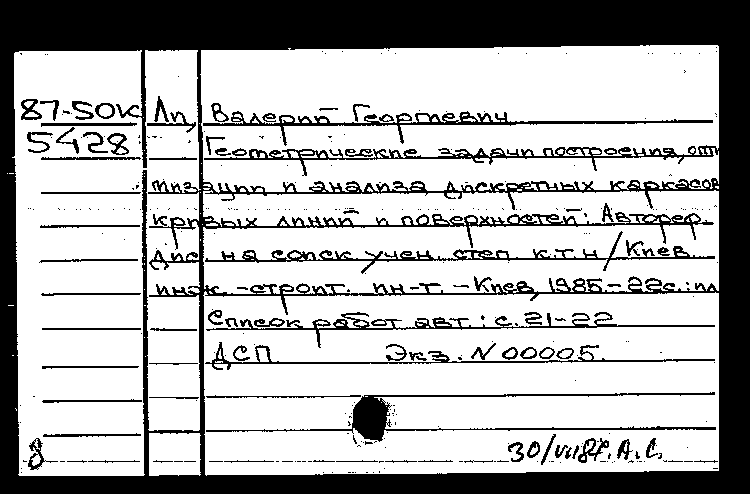 87-50к Ли, Валерий Георгиевич
5428 Геометрические задачи построения, опти
мизации и анализа дискретных каркасов
кривых линий и поверхностей: Автореф.
Дис. на соиск. учен. степ к.т.н / Киев.
инж.-строит. ин-т. - Киев, 1985. - 22с.: ил
Список работ авт.: с. 21-22
ДСП Экз. N 00005.
8 30/VII87. А.С.